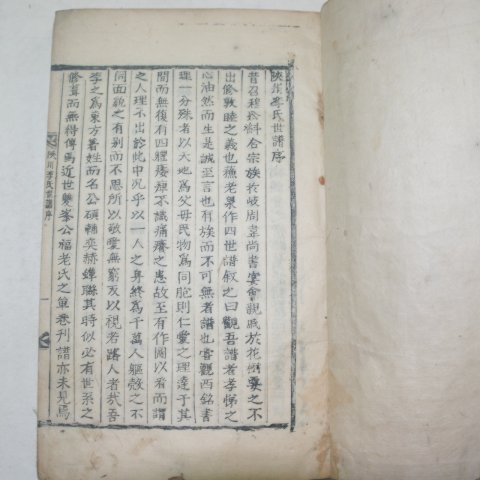 陜川李氏世譜序
昔召穆公糾合宗族於岐周韋尚書宴會親戚於花樹要之不
出修敦睦之義也蘇老泉作四世譜叙之曰觀吾譜者孝悌之
心油然而生是誠至言也有族而不可無者譜也嘗觀西銘書
理一分殊者以天地爲父母民物爲同胞則仁愛之理達于其
間而無復有四體癈痺不識痛癢之患故至有作圖以看而謂
之人理不出於此中况乎以一人之身終爲千萬人軀殼之不
同面貌之有别而不思所以敬愛無窮反以視若路人者哉吾
李之爲東方著姓而名公碩輔奕赫蟬聯其時似必有世系之
修葺而無得傳焉近世雙峯公福老氏之
卷刋譜亦未見焉
陜川李氏世譜序
一